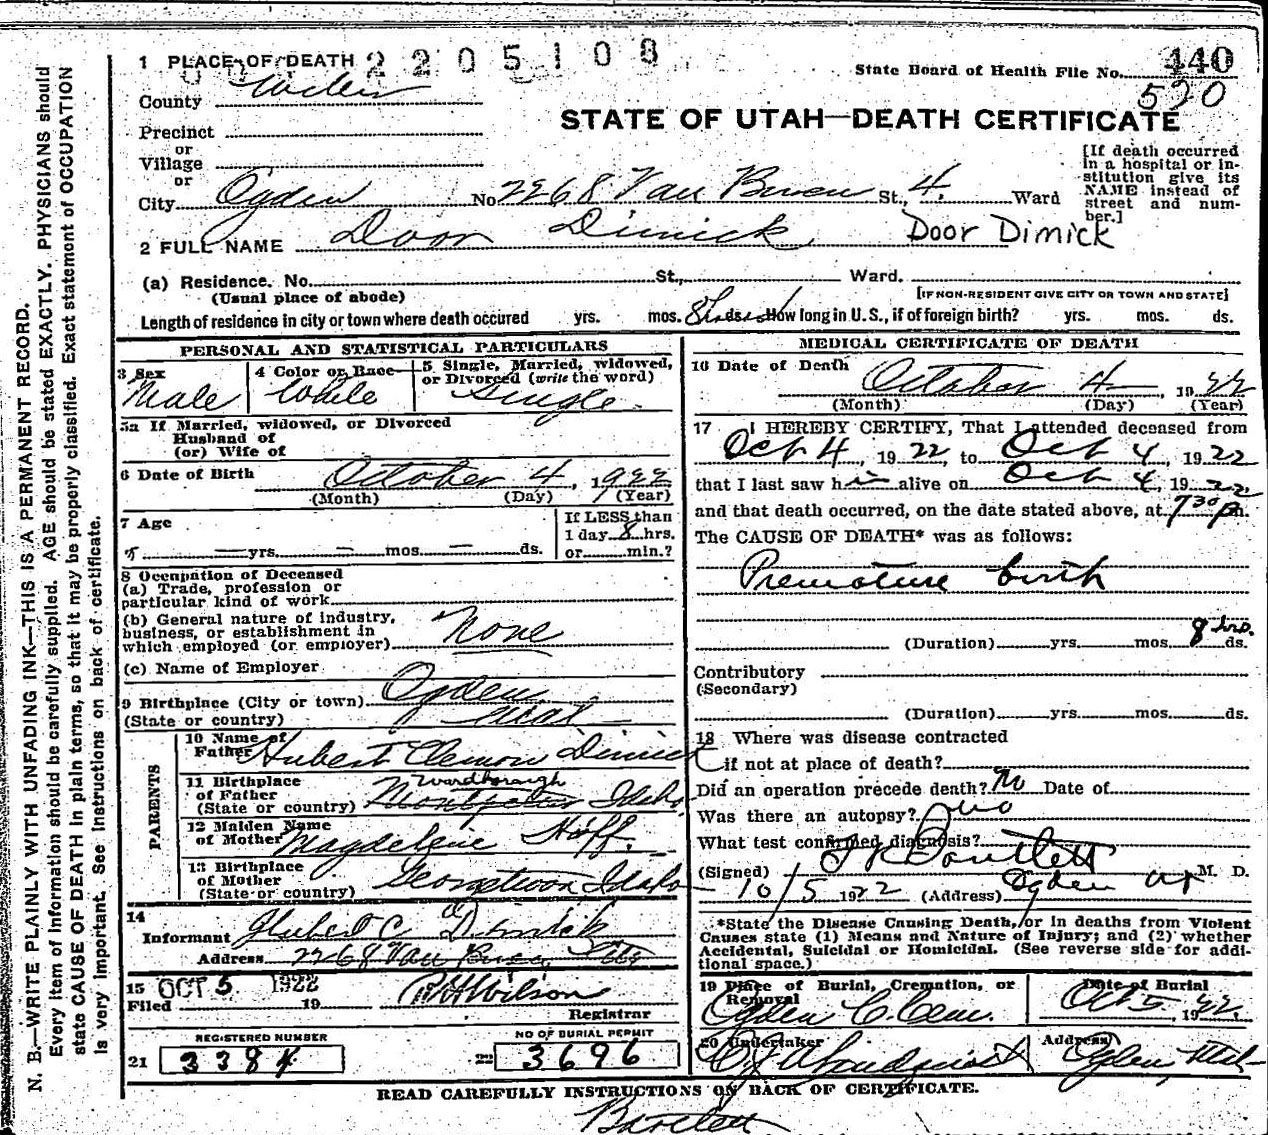 1 PLACE OF DEATH 2205108
State Board of Health File No. 440
County Weber
520
STATE OF UTAH—DEATH CERTIFICATE
Precinct
or
Village
or
City Ogden No 2268 Van Buren St., 4. Ward
[If death occurred in a hospital or institution give its NAME instead of street and number.]
2 FULL NAME Door Dimick Door Dimick
(a) Residence. No. St., Ward.
(Usual place of abode) [IF NON-RESIDENT GIVE CITY OR TOWN AND STATE]
Length of residence in city or town where death occured yrs. mos. 8 hrs ds. How long in U.S., if of foreign birth? yrs. mos. ds.
PERSONAL AND STATISTICAL PARTICULARS
3 Sex Male
4 Color or Race White
5 Single, Married, widowed, or Divorced (write the word) Single
5a If Married, widowed, or Divorced
Husband of
(or) Wife of
6 Date of Birth October 4, 1922
(Month) (Day) (Year)
7 Age
— yrs. — mos. — ds.
If LESS than
1 day 8 hrs.
or min.?
8 Occupation of Deceased
(a) Trade, profession or
particular kind of work
(b) General nature of industry,
business, or establishment in
which employed (or employer) None
(c) Name of Employer
9 Birthplace (City or town) Ogden
(State or country) Utah
PARENTS
10 Name of
Father Hubert Clemon Dimick
11 Birthplace Wardborough
of Father Montpelier Idaho
(State or country)
12 Maiden Name
of Mother Magdelene Hoff.
13 Birthplace
of Mother Georgetown Idaho
(State or country)
14
Informant Hubert C Dimick
Address 2268 Van Buren
15 OCT 5 1922
Filed 19
R H Wilson
Registrar
REGISTERED NUMBER NO OF BURIAL PERMIT
21 3384 22 3696
MEDICAL CERTIFICATE OF DEATH
16 Date of Death October 4, 1922
(Month) (Day) (Year)
17 I HEREBY CERTIFY, That I attended deceased from
Oct 4, 1922, to Oct 4, 1922
that I last saw him alive on Oct 4, 1922
and that death occurred, on the date stated above, at 730 p.m.
The CAUSE OF DEATH* was as follows:
Premature birth
8 hrs.
(Duration) yrs. mos. ds.
Contributory
(Secondary)
(Duration) yrs. mos. ds.
18 Where was disease contracted
if not at place of death?
Did an operation precede death? No Date of
Was there an autopsy? No
What test confirmed diagnosis?
(Signed) Bartlett M. D.
10/5 1922 (Address) Ogden Ut
*State the Disease Causing Death, or in deaths from Violent
Causes state (1) Means and Nature of Injury; and (2) whether
Accidental, Suicidal or Homicidal. (See reverse side for addi-
tional space.)
19 Place of Burial, Cremation, or
Removal
Ogden C. Cem.
Date of Burial
Oct 5, 1922.
20 Undertaker
Lindquist
Address
Ogden, Utah
READ CAREFULLY INSTRUCTIONS ON BACK OF CERTIFICATE.
Bartlett
N. B.—WRITE PLAINLY WITH UNFADING INK—THIS IS A PERMANENT RECORD.
Every item of information should be carefully supplied. AGE should be stated EXACTLY. PHYSICIANS should
state CAUSE OF DEATH in plain terms, so that it may be properly classified. Exact statement of OCCUPATION
is very important. See Instructions on back of certificate.